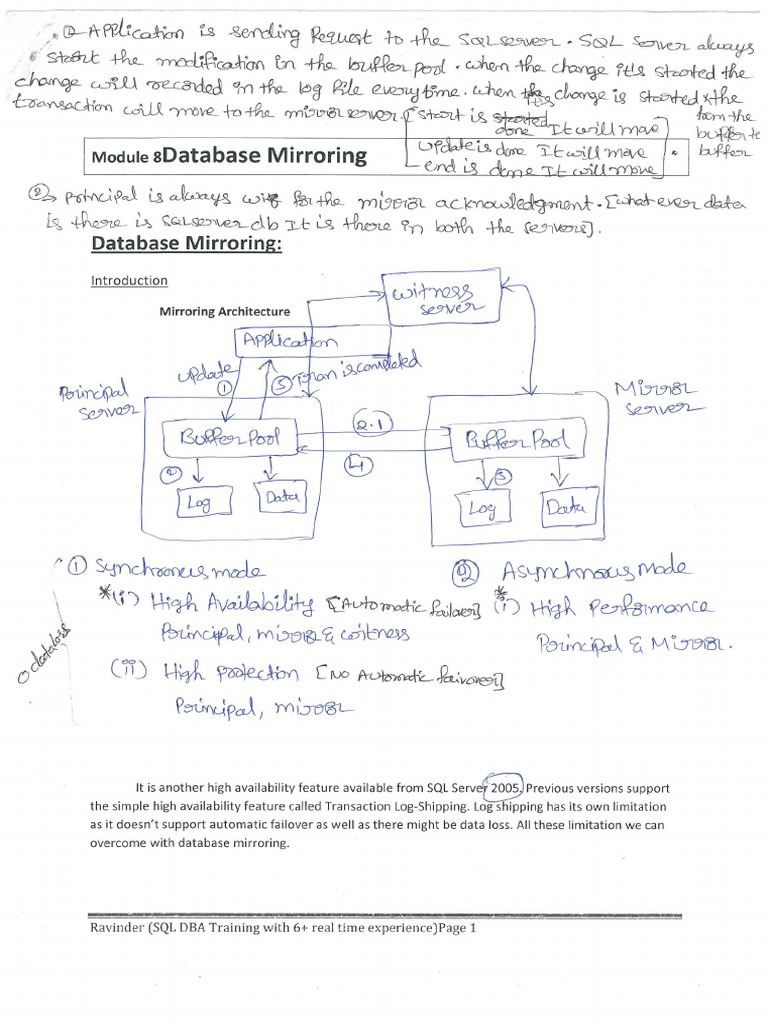 ① Application is sending Request to the SQL server. SQL server always
start the modification in the buffer pool. when the change it's started the
change will recorded in the log file everytime. when this change is started the
transaction will move to the mirror server
start is started
done It will move
update is done It will move
end is done It will move
from the
buffer to
buffer
Module 8 Database Mirroring
② → principal is always for the mirror acknowledgment. [what ever data
is there is SQL server db It is there in both the servers].
Database Mirroring:
Introduction
Mirroring Architecture
witness
server
Application
update
①
⑤ Tran is completed
Principal
server
Mirror
server
Buffer Pool
2.1
Buffer Pool
4
②
③
Log
Data
Log
Data
① Synchronous mode
② Asynchnous mode
*(i) High Availability [Automatic failover]
*(i) High Performance
Principal, mirror & witness
Principal & Mirror.
0 dataloss
(ii) High protection [No Automatic faivover]
Principal, mirror
It is another high availability feature available from SQL Server 2005. Previous versions support
the simple high availability feature called Transaction Log-Shipping. Log shipping has its own limitation
as it doesn't support automatic failover as well as there might be data loss. All these limitation we can
overcome with database mirroring.
Ravinder (SQL DBA Training with 6+ real time experience)Page 1